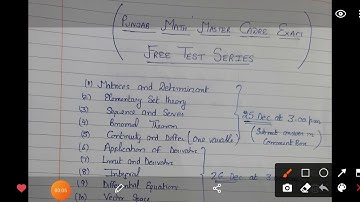 Punjab Math Master Cadre Exam
Free Test Series
(1) Matrices and Determinant
(2) Elementary Set Theory
(3) Sequence and Series
(4) Binomial Theorem
(5) Continuity and Differ (one variable)
(6) Application of Derivative
(7) Limit and Derivative
(8) Integral
(9) Differential Equations
(10) Vector Space
25 Dec at 3:00 pm
(Submit answer in
Comment Box)
26 Dec at 3
00:05